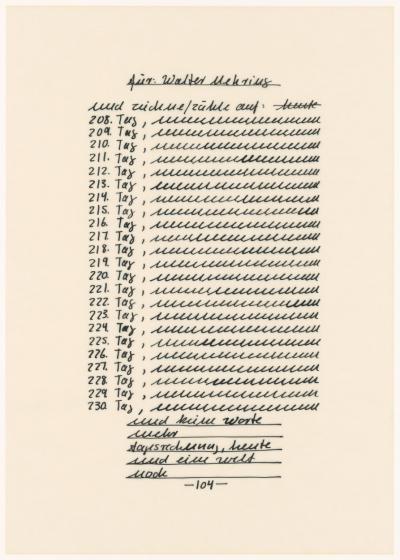 für: Walter Mehring
und zeichne/zähle auf: heute
208. Tag,
209. Tag,
210. Tag,
211. Tag,
212. Tag,
213. Tag,
214. Tag,
215. Tag,
216. Tag,
217. Tag,
218. Tag,
219. Tag,
220. Tag,
221. Tag,
222. Tag,
223. Tag,
224. Tag,
225. Tag,
226. Tag,
227. Tag,
228. Tag,
229. Tag,
230. Tag,
und keine worte
mehr
tagsrechnung, heute
und eine welt
noch
—104—